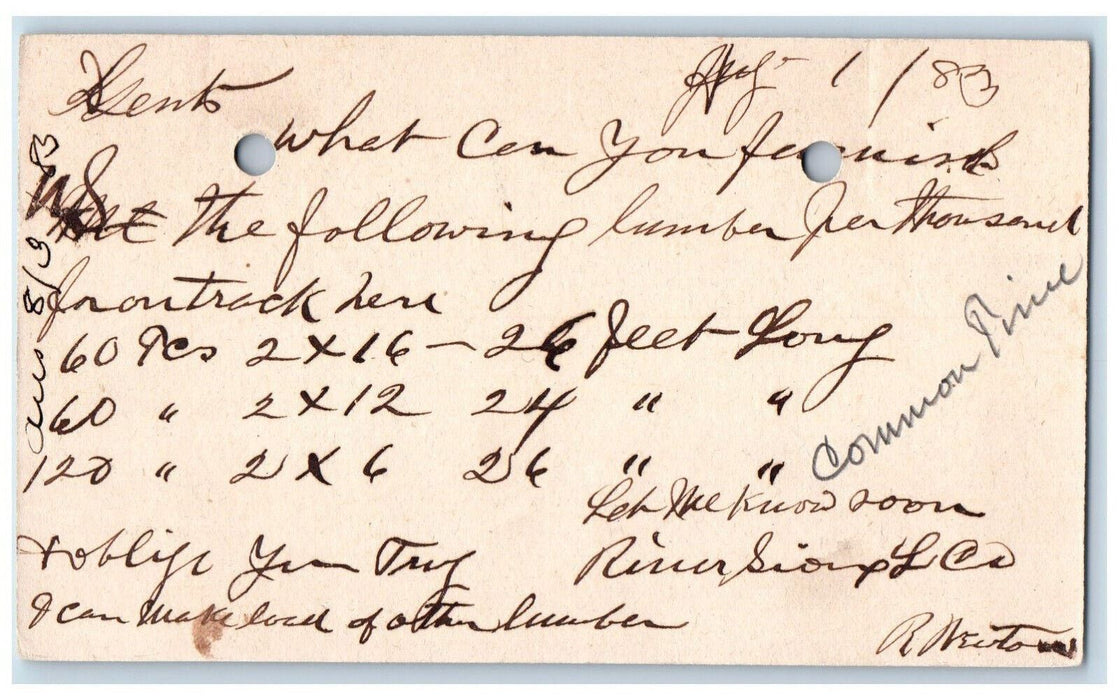 Aug 1 / 83
Gents
What Can You furnish
us the following lumber per thousand
for on track here
60 Pcs 2 X 16 — 26 feet Long
60 " 2 X 12 24 " "
120 " 2 X 6 26 " "
Let Me Know soon
& oblige Yours Truly
River Sioux L Co
I can make load of other lumber
R Newton
Common Pine
ans 8/3 83